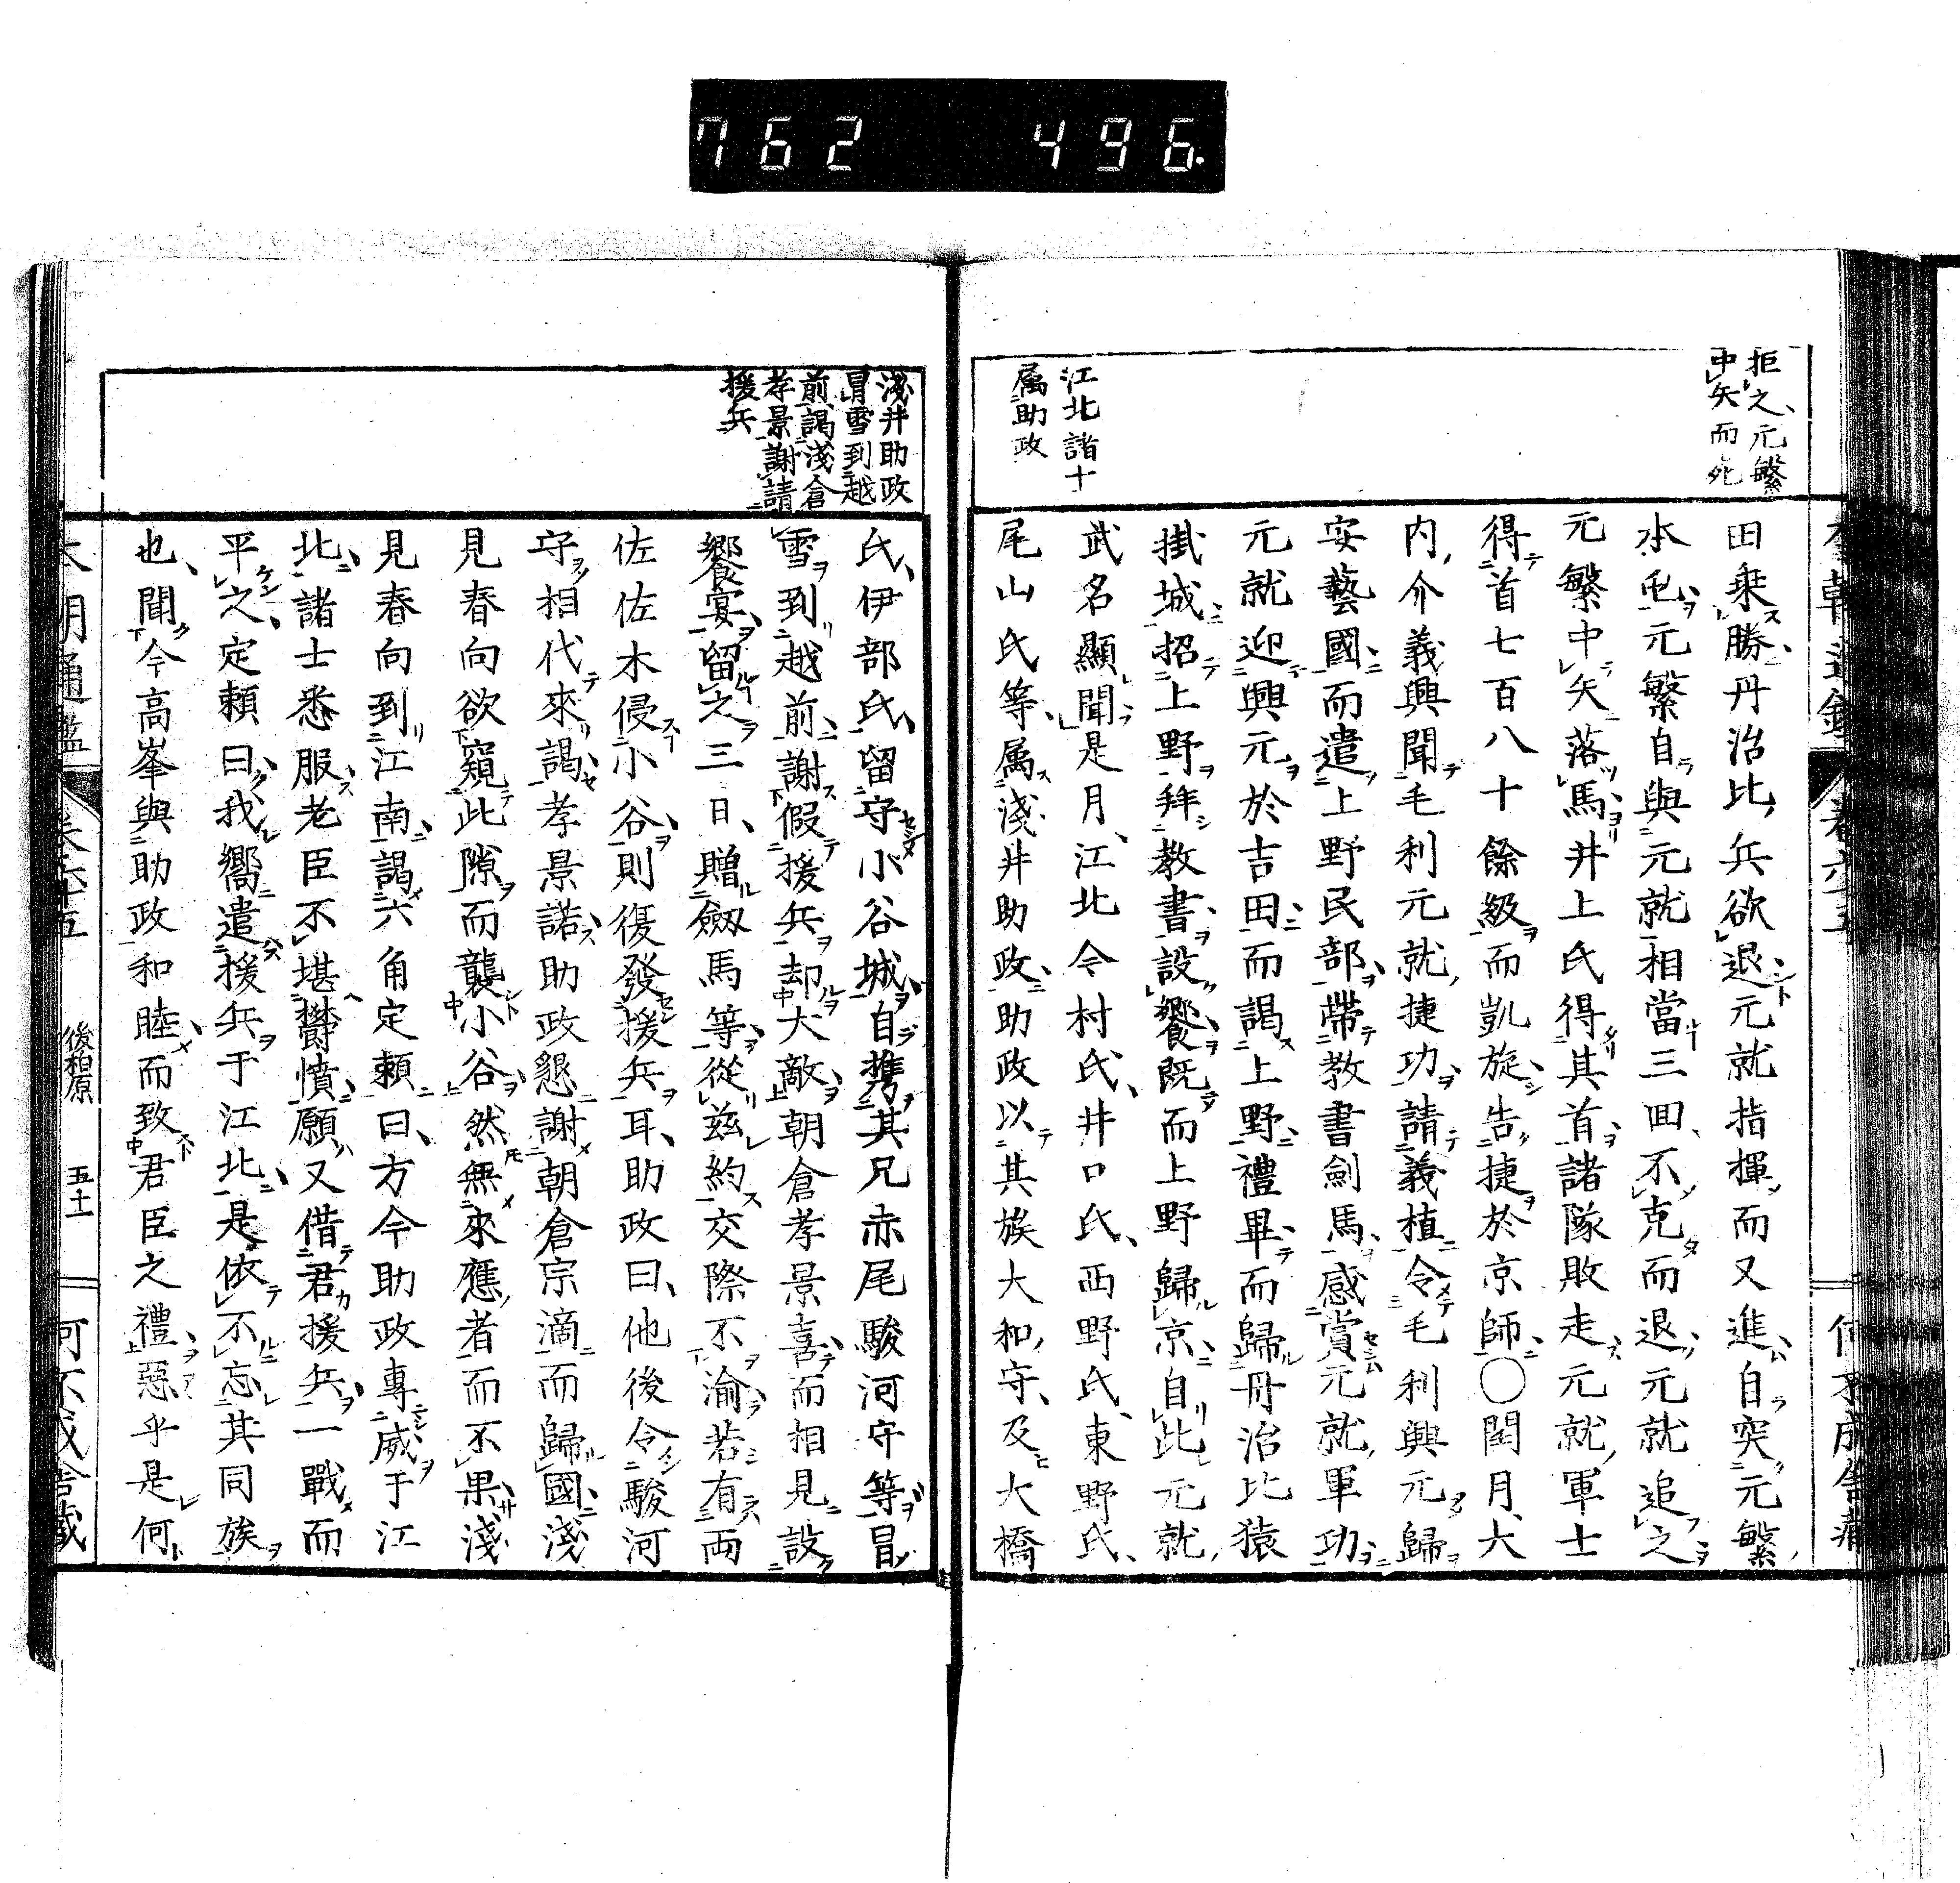 762 496
拒之、元繁
中矢而死
江北諸士
属助政
田乗勝丹治比兵欲退元就指揮而又進自突元繁
水乕元繁自與元就相當三囬、不克而退元就追之
元繁中矢落馬井上氏得其首諸隊敗走元就軍士
得首七百八十餘級而凱旋告捷於京師○閏月大
内介義興聞毛利元就捷功請義植令毛利興元歸
安藝國而遣上野民部帶教書劍馬感賞元就軍功
元就迎興元於吉田而謁上野禮畢而歸丹治比猿
掛城招上野拜教書設饗既而上野歸京自此元就
武名顯聞是月、江北今村氏、井口氏、西野氏、東野氏、
尾山氏等属淺井助政助政以其族大和守、及大橋
淺井助政
冒雪到越
前謁淺倉
孝景謝請
援兵
氏、伊部氏、留守小谷城、自携其兄赤尾駿河守等冒
雪到越前謝假援兵却大敵朝倉孝景喜而相見設
饗宴留之三日、贈劔馬等從茲約交際不渝若有両
佐佐木侵小谷則復發援兵耳、助政曰、他後令駿河
守相代來謁孝景諾助政懇謝朝倉宗滴而歸國淺
見春向欲窺此隙而襲小谷然無來應者而不果淺
見春向到江南謁六角定頼曰、方今助政專威于江
北諸士悉服老臣不堪欝憤願又借君援兵一戰而
平之、定頼曰我嚮遣援兵于江北是依不忘其同族
也、聞今高峯與助政和睦而致君臣之禮惡乎是何
本朝通鑑
卷六十五
後柏原
五十一
何不成舎蔵